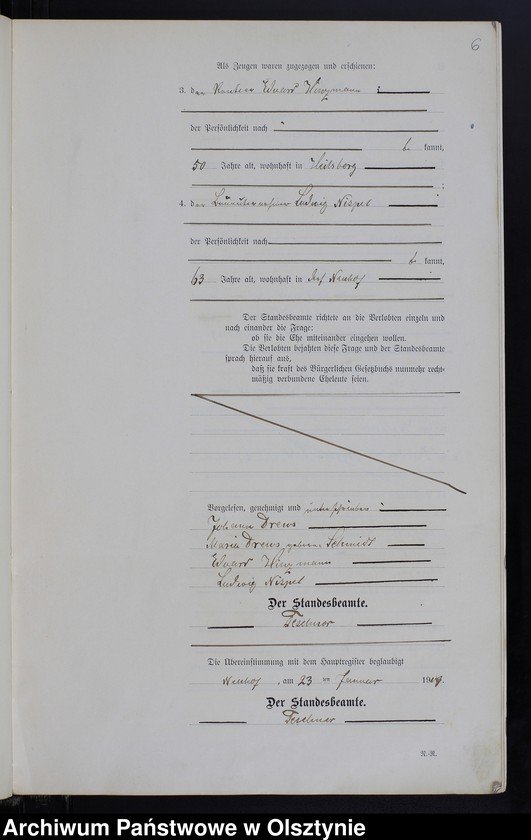 6
Als Zeugen waren zugezogen und erschienen:
3. der Eduard Hinzmann
der Persönlichkeit nach
be kannt,
50 Jahre alt, wohnhaft in Heilsberg
;
4. der Ludwig Nispel
der Persönlichkeit nach
be kannt,
63 Jahre alt, wohnhaft in Neuhof
Der Standesbeamte richtete an die Verlobten einzeln und
nach einander die Frage:
ob sie die Ehe miteinander eingehen wollen.
Die Verlobten bejahten diese Frage und der Standesbeamte
sprach hierauf aus,
daß sie kraft des Bürgerlichen Gesetzbuchs nunmehr recht-
mäßig verbundene Eheleute seien.
Vorgelesen, genehmigt und unterschrieben
Johann Drews
Maria Drews geborene Schmidt
Eduard Hinzmann
Ludwig Nispel
Der Standesbeamte.
Teschner
Die Übereinstimmung mit dem Hauptregister beglaubigt
Neuhof, am 23 ten Januar 19
Der Standesbeamte.
Teschner
R.-R.
Archiwum Państwowe w Olsztynie